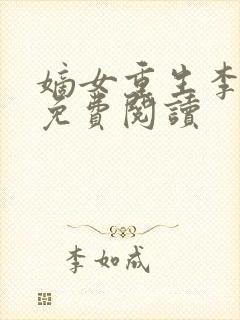 嫡女重生李
免費閱讀
李如成